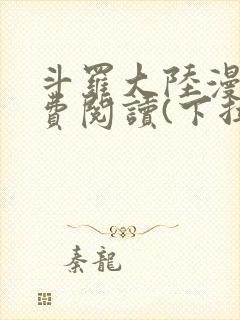 斗羅大陸漫
費閱讀(下拉
秦龍